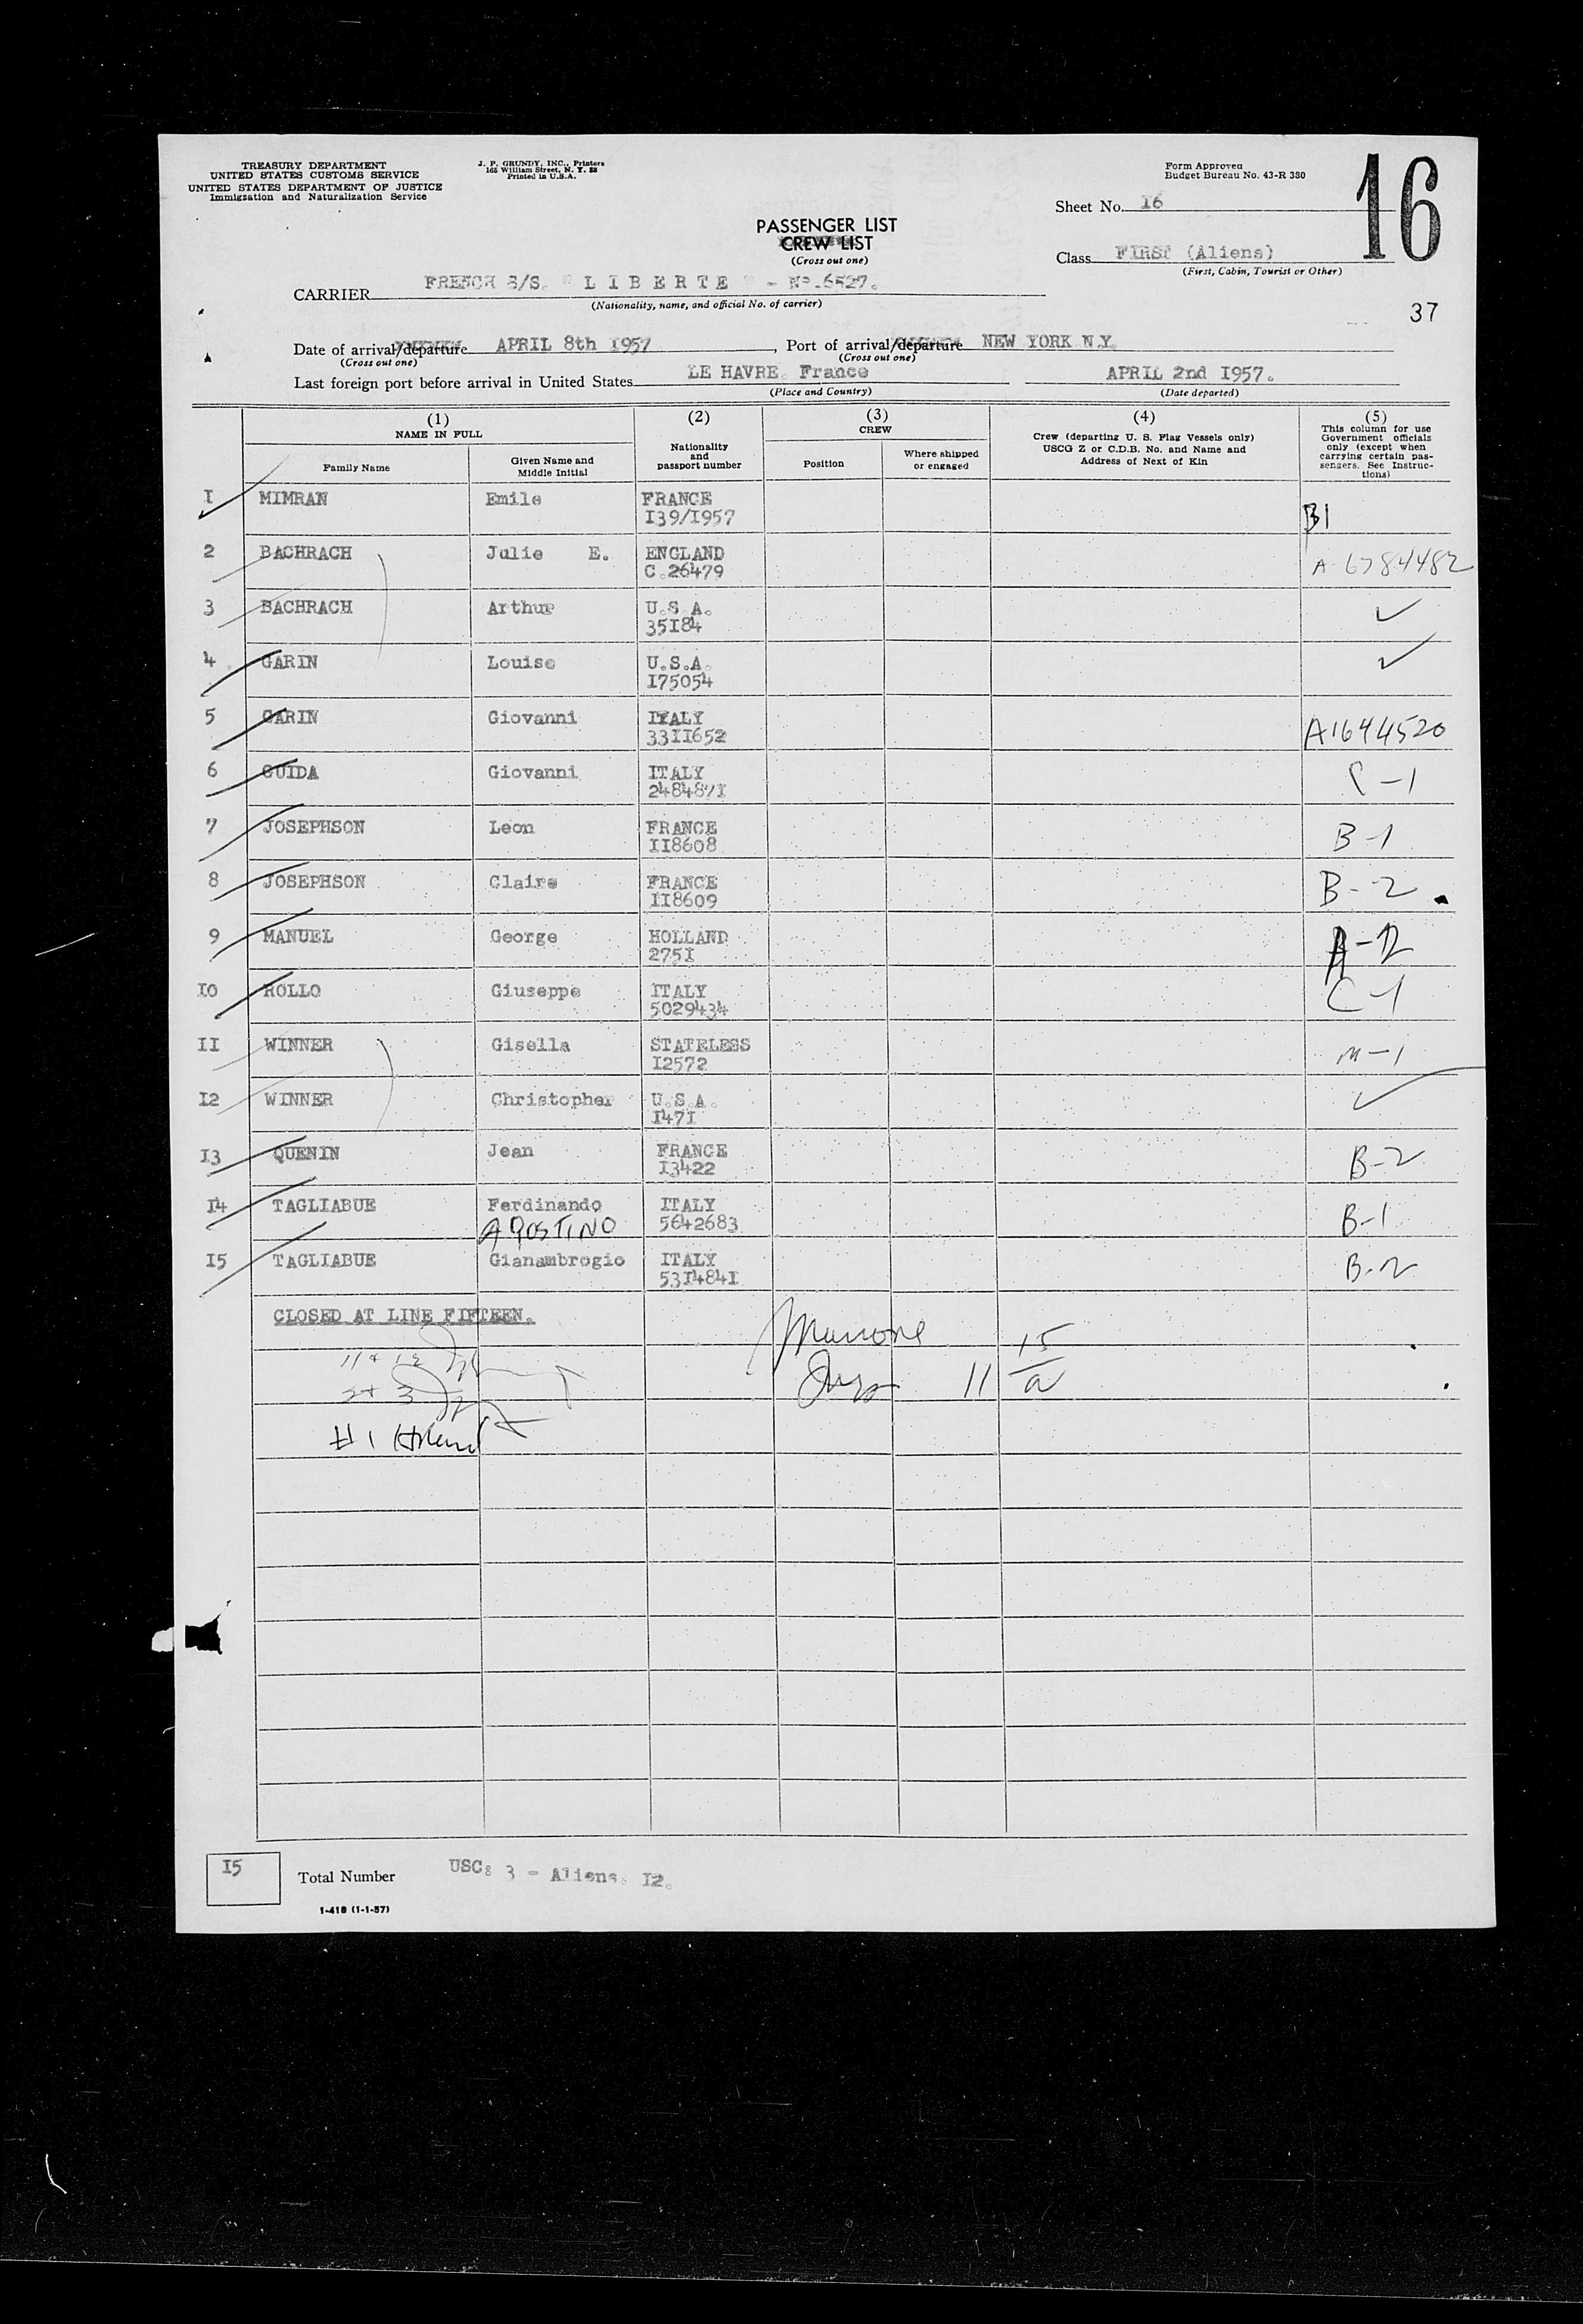 TREASURY DEPARTMENT
UNITED STATES CUSTOMS SERVICE
UNITED STATES DEPARTMENT OF JUSTICE
Immigration and Naturalization Service
J. P. GRUNDY, INC., Printers
165 William Street, N. Y. 38
Printed in U.S.A.
Form Approved
Budget Bureau No. 43-R 380
16
Sheet No. I6
PASSENGER LIST
CREW LIST
(Cross out one)
Class FIRST (Aliens)
(First, Cabin, Tourist or Other)
CARRIER FRENCH S/S. " L I B E R T E " - Nº.6527.
(Nationality, name, and official No. of carrier)
37
Date of arrival/departure APRIL 8th I957, Port of arrival/departure NEW YORK N.Y.
(Cross out one) (Cross out one)
Last foreign port before arrival in United States LE HAVRE. France APRIL 2nd I957.
(Place and Country) (Date departed)
(1) NAME IN FULL
Family Name
Given Name and Middle Initial
(2) Nationality and passport number
(3) CREW
Position
Where shipped or engaged
(4) Crew (departing U. S. Flag Vessels only) USCG Z or C.D.B. No. and Name and Address of Next of Kin
(5) This column for use Government officials only (except when carrying certain passengers. See Instructions)
I MIMRAN Emile FRANCE B1
I39/I957
2 BACHRACH Julie E. ENGLAND A-6784482
C.26479
3 BACHRACH Arthur U.S.A. ✓
35I84
4 GARIN Louise U.S.A. ✓
I75054
5 GARIN Giovanni ITALY A1644520
33II652
6 GUIDA Giovanni ITALY
248487I
7 JOSEPHSON Leon FRANCE B-1
II8608
8 JOSEPHSON Claire FRANCE B-2
II8609
9 MANUEL George HOLLAND
275I
I0 ROLLO Giuseppe ITALY C-1
5029434
II WINNER Gisella STATELESS M-1
I2572
I2 WINNER Christopher U.S.A. ✓
I47I
I3 QUENIN Jean FRANCE B-2
I3422
I4 TAGLIABUE Ferdinando ITALY B-1
AGOSTINO 5642683
I5 TAGLIABUE Gianambrogio ITALY B-2
53I484I
CLOSED AT LINE FIFTEEN.
11 + 12
2 + 3
11 15
#1
I5 Total Number USC: 3 - Aliens. I2.
I-418 (1-1-57)